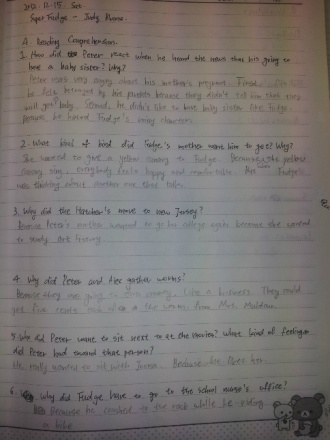 2012. 12. 15. Sat
Super Fudge - Judy Blume.
A. Reading Comprehension
1. How did Peter react when he heard the news that his going to
have a baby sister? Why?
Peter was very angry about his mother's First,
he felt betrayed by his parents because they didn't tell him that they
will get baby. Second, he didn't like to have baby sister like Fudge
because he hated Fudge's
2. What kind of bird did Fudge's mother want him to get? Why?
She wanted to give a yellow canary to Fudge. Because the yellow
canary sing, everybody feels happy and comfortable. But Fudge
was thinking about another one than
3. Why did the Hatcher's move to New Jersey?
Because Peter's mother wanted to go to college again because she wanted
to study art history.
4. Why did Peter and Alex gather worms?
Because they are going to earn money, like a business. They could
get five cents each of a the worms, from Mrs. Muldour.
5. Who did Peter want to sit next to at the movies? What kind of feelings
did Peter had toward that person?
He really wanted to sit with Joanne. Because he likes her.
6. Why did Fudge have to go to the school nurse's office?
Because he crashed to the rock while he riding
a bike